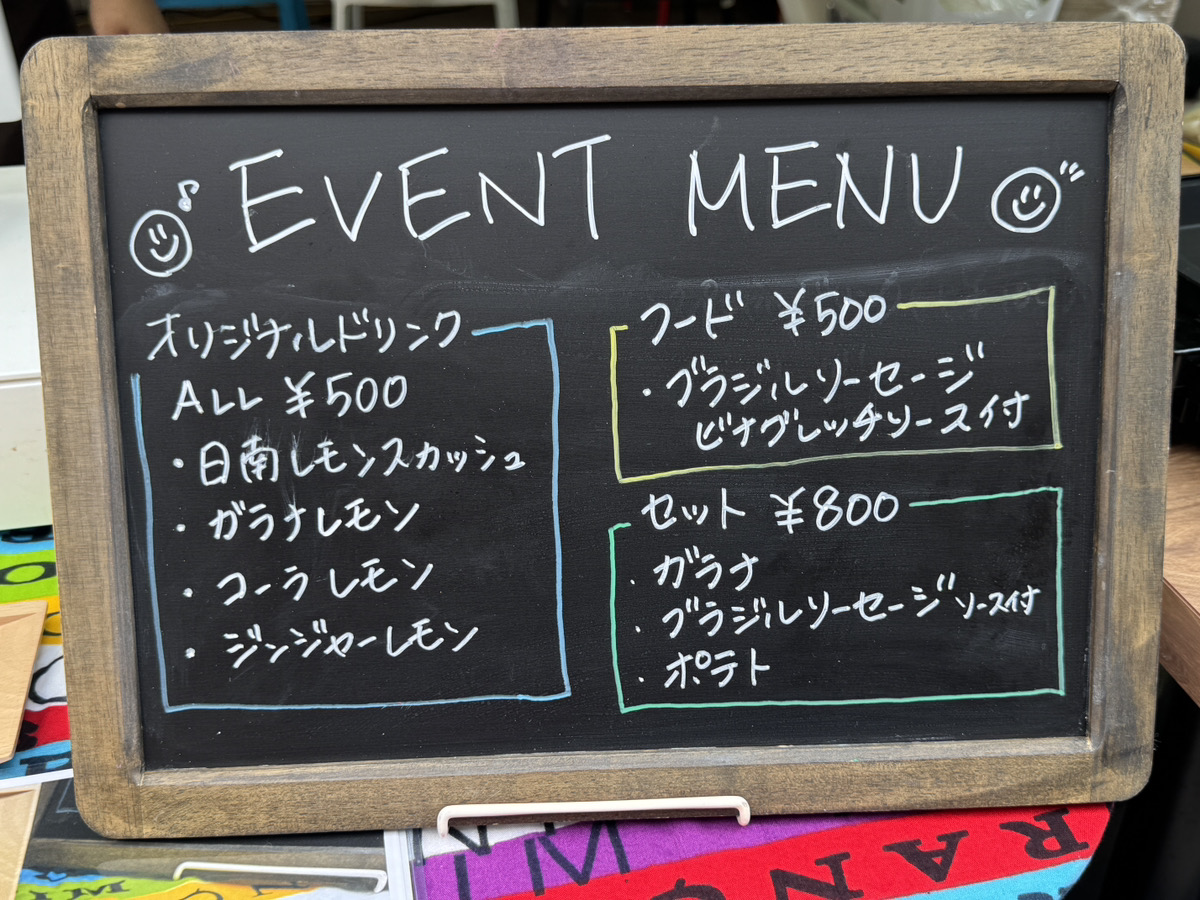 EVENT MENU
オリジナルドリンク
ALL ¥500
・日南レモンスカッシュ
・ガラナレモン
・コーラレモン
・ジンジャーレモン
フード ¥500
・ブラジルソーセージ
ビナグレッチソース付
セット ¥800
・ガラナ
・ブラジルソーセージ ソース付
・ポテト
RANG